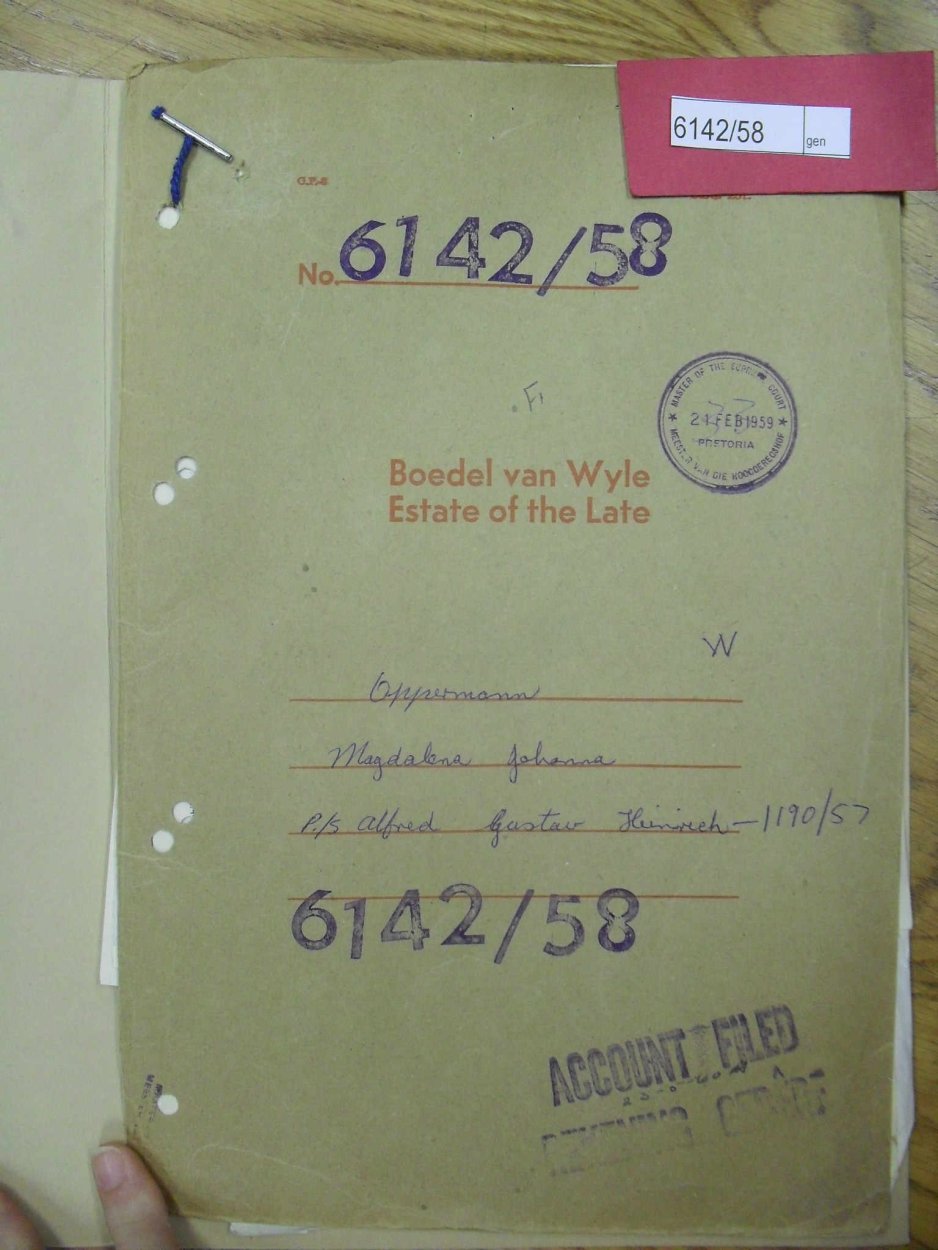 6142/58 gen
G.P.-S
No. 6142/58
F1
MASTER OF THE SUPREME COURT
21 FEB 1959
PRETORIA
MEESTER VAN DIE HOOGGEREGSHOF
Boedel van Wyle
Estate of the Late
W
Oppermann
Magdalena Johanna
P./S Alfred Gustav Heinrich - 1190/57
6142/58
ACCOUNT FILED
REKENING